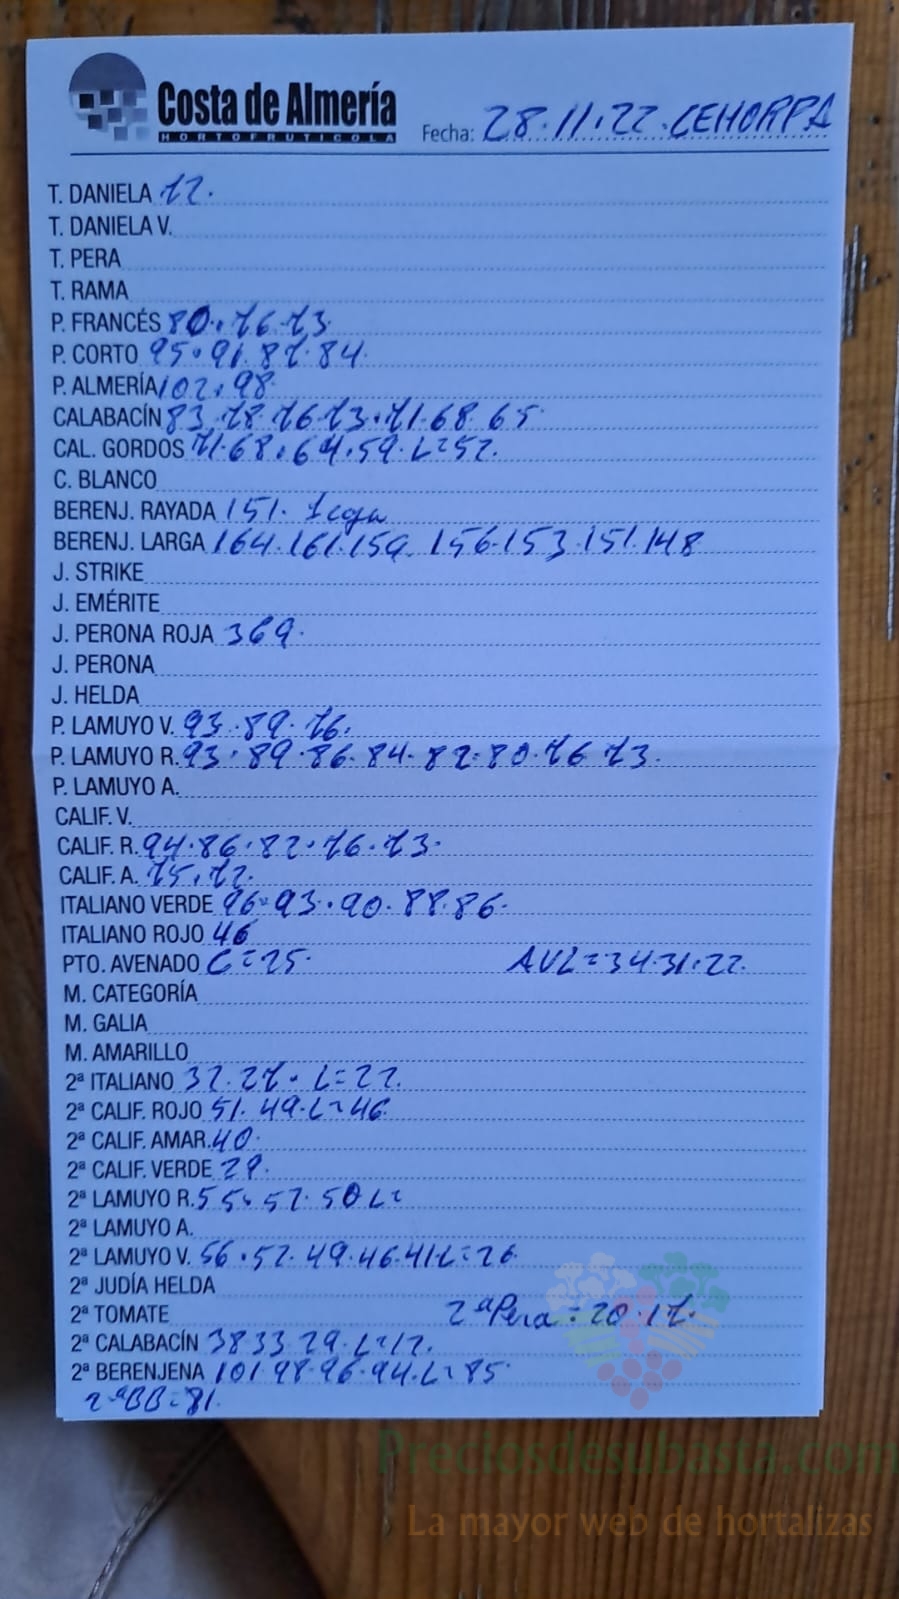 Costa de Almería
HORTOFRUTICOLA
Fecha: 28.11.22. CEHORPA
T. DANIELA 72.
T. DANIELA V.
T. PERA
T. RAMA
P. FRANCÉS 80. 76. 73
P. CORTO 95. 91. 87. 84.
P. ALMERÍA 102. 98
CALABACÍN 83. 78. 76. 73. 71. 68. 65
CAL. GORDOS 71. 68. 64. 59. L=52.
C. BLANCO
BERENJ. RAYADA 151. 1 caja
BERENJ. LARGA 164. 161. 159. 156. 153. 151. 148
J. STRIKE
J. EMÉRITE
J. PERONA ROJA 369.
J. PERONA
J. HELDA
P. LAMUYO V. 93. 89. 76.
P. LAMUYO R. 93. 89. 86. 84. 82. 80. 76. 73.
P. LAMUYO A.
CALIF. V.
CALIF. R. 94. 86. 82. 76. 73.
CALIF. A. 75. 72.
ITALIANO VERDE 96. 93. 90. 88. 86.
ITALIANO ROJO 46
PTO. AVENADO C=25. AVL=34.31.22.
M. CATEGORÍA
M. GALIA
M. AMARILLO
2ª ITALIANO 32. 27. L=22.
2ª CALIF. ROJO 51. 49. L=46
2ª CALIF. AMAR. 40.
2ª CALIF. VERDE 29.
2ª LAMUYO R. 55. 52. 50 L=
2ª LAMUYO A.
2ª LAMUYO V. 56. 52. 49. 46. 41 L=26
2ª JUDÍA HELDA
2ª TOMATE 2ª Pera = 20. 17.
2ª CALABACÍN 38 33 29. L=12.
2ª BERENJENA 101. 98. 96. 94. L=85
2ª BB=81.
Preciosdesubasta.com
La mayor web de hortalizas